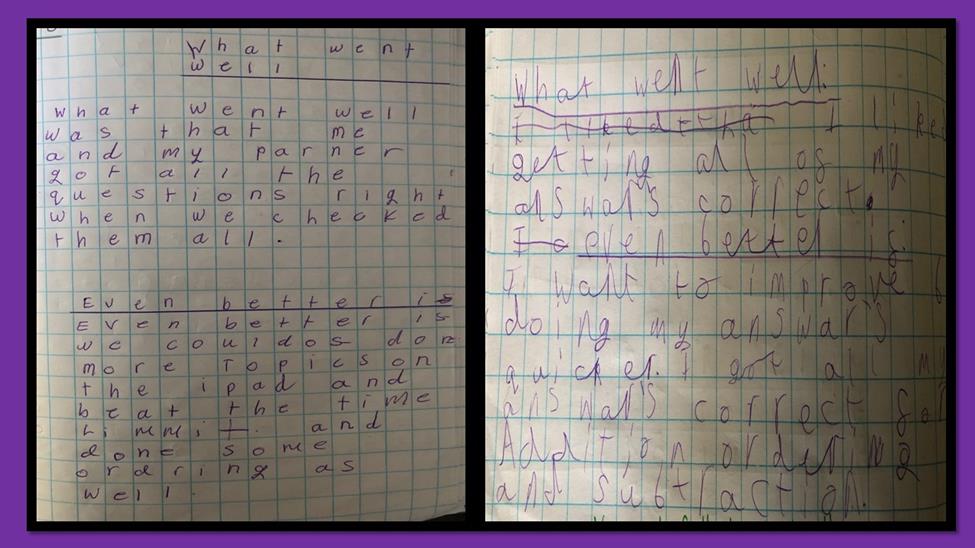 What went
well
what went well
was that me
and my parner
got all the
questions right
when we checked
them all.
Even better is
Even better is
we couldos don
more Topics on
the ipad and
beat the time
limmit. and
done some
ordring as
well.
What went well:
I liked tha I liked
getting all of my
answars correct.
I even better is:
I want to improve b
doing my answar's
quicker. I got all my
answars correct for
Addition ordering
and subtraction.